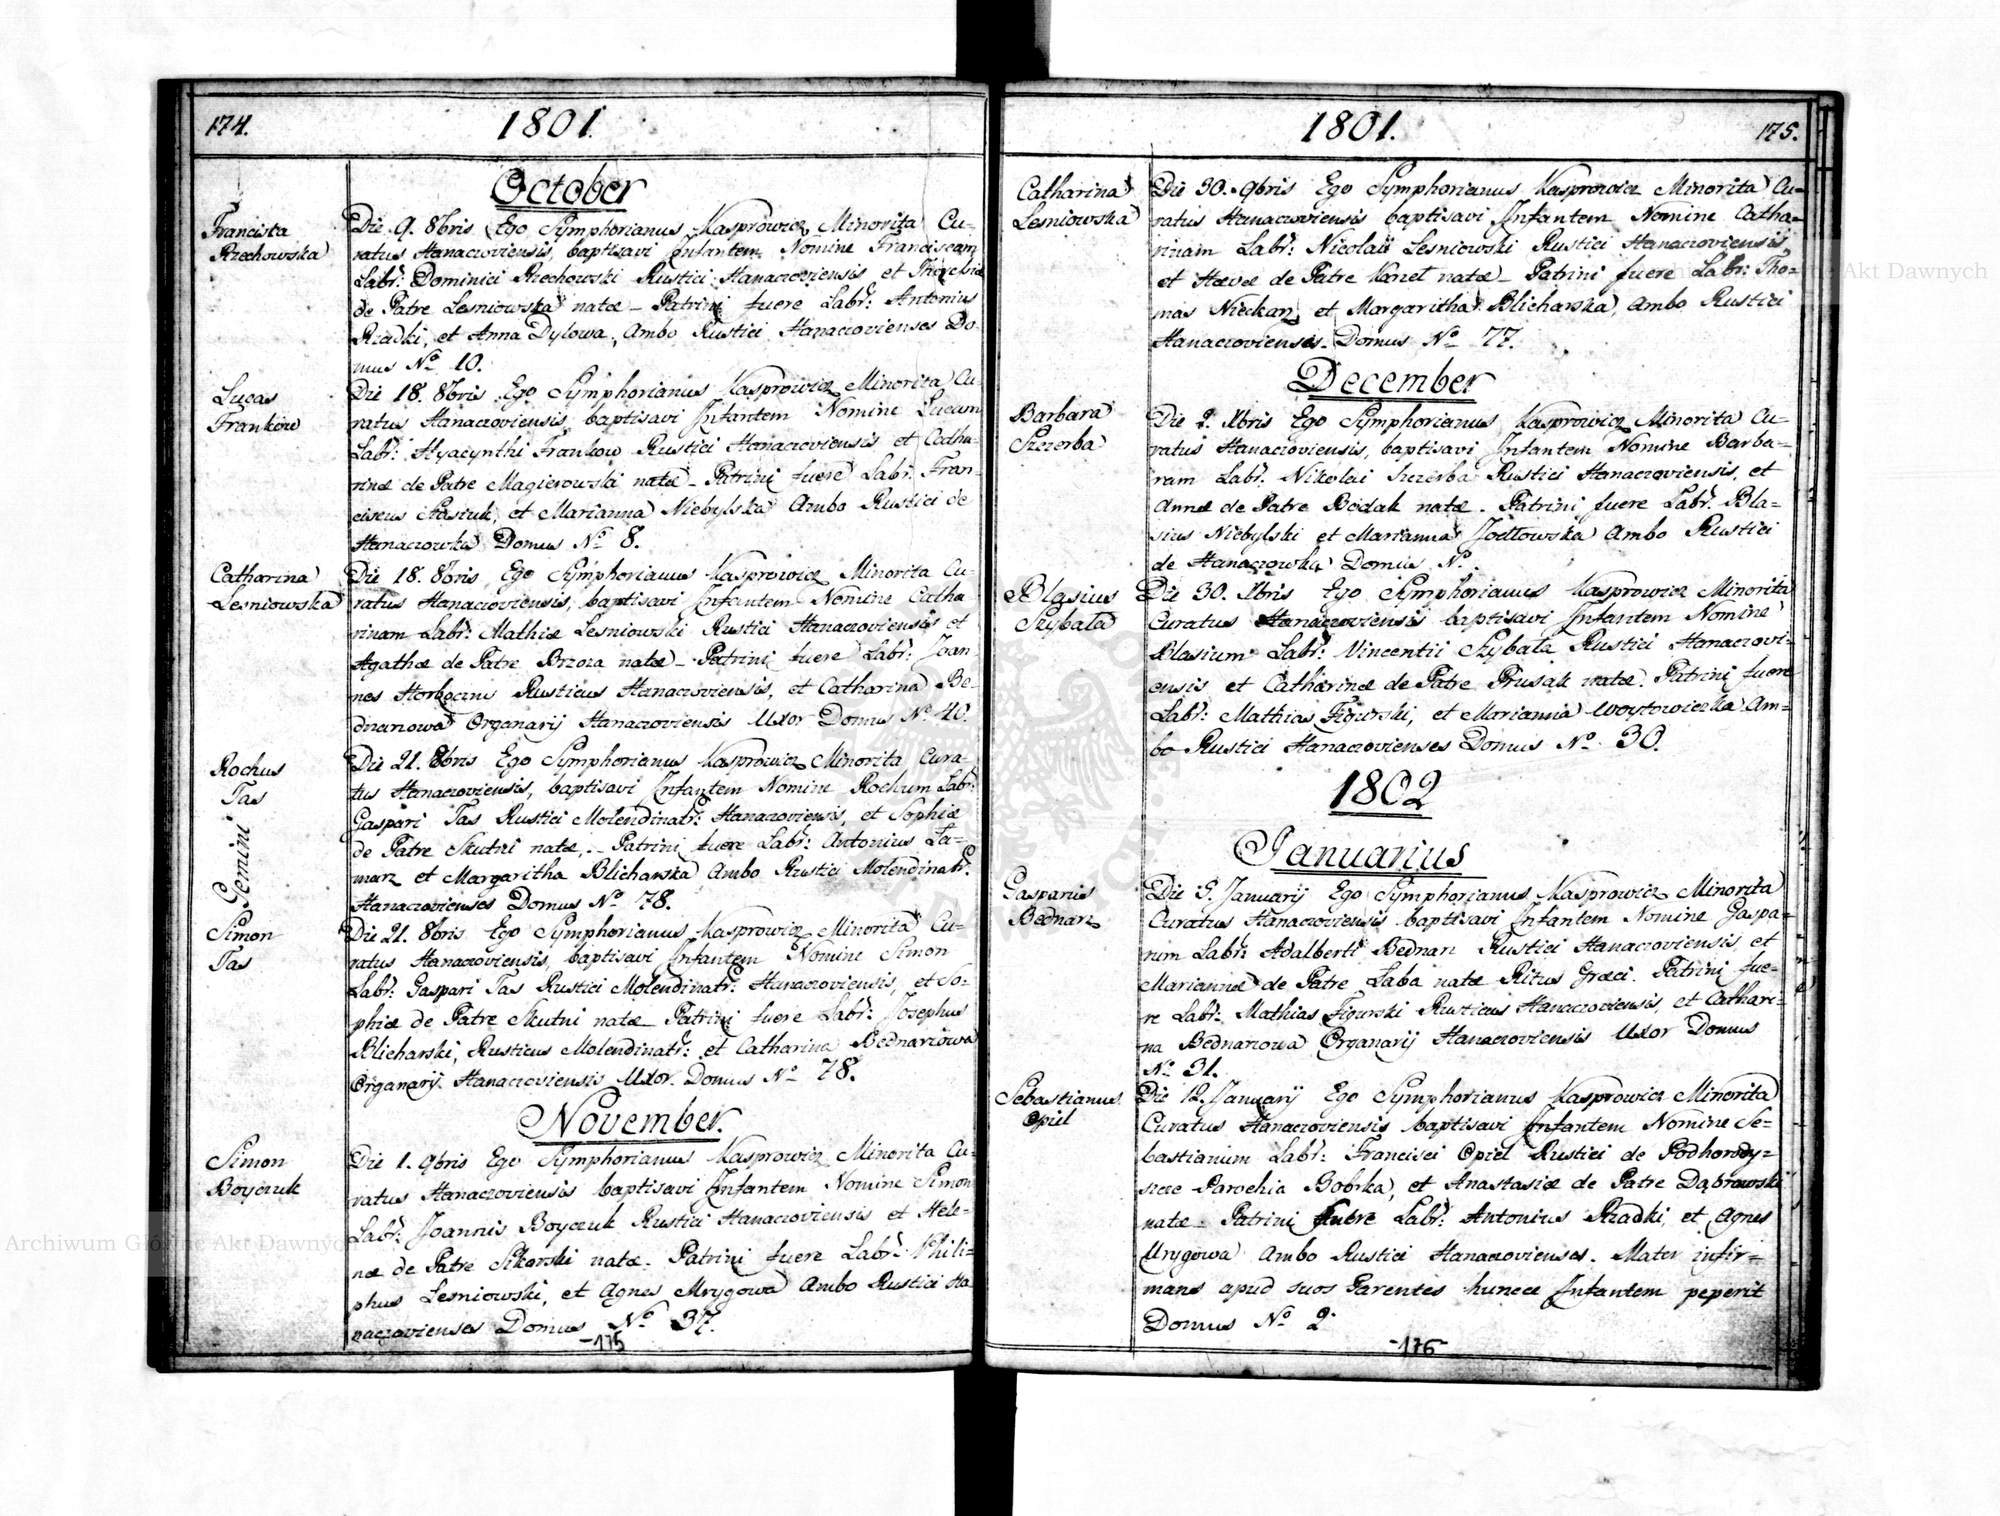 174.
1801.
October
Francisca
Rzechowska
Die 9. 8bris Ego Symphorianus Kasprowicz Minorita Cu-
ratus Hanaczoviensis, baptisavi Infantem Nomine Franciscam
Labr: Dominici Rzechowski Rustici Hanaczoviensis et Theclae
de Patre Lesniowska natae - Patrini fuere Labr: Antonius
Rzadki, et Anna Dylowa, Ambo Rustici Hanaczovienses Do-
mus No 10.
Lucas
Franków
Die 18. 8bris Ego Symphorianus Kasprowicz Minorita Cu-
ratus Hanaczoviensis, baptisavi Infantem Nomine Lucam
Labr: Hyacynthi Frankow Rustici Hanaczoviensis et Catha-
rinae de Patre Magierowski natae - Patrini fuere Labr: Fran-
ciscus Stasiuk, et Marianna Niebylska Ambo Rustici de
Hanaczowka Domus No 8.
Catharina
Lesniowska
Die 18. 8bris Ego Symphorianus Kasprowicz Minorita Cu-
ratus Hanaczoviensis, baptisavi Infantem Nomine Catha
rinam Labr: Mathiae Lesniowski Rustici Hanaczoviensis et
Agathae de Patre Brzoza natae - Patrini fuere Labr: Joan
nes Horboczni Rusticus Hanaczoviensis, et Catharina Be-
dnarzowa Organarij Hanaczoviensis Uxor Domus No 40.
Rochus
Tas
Gemini
Die 21. 8bris Ego Symphorianus Kasprowicz Minorita Cura-
tus Hanaczoviensis, baptisavi Infantem Nomine Rochum Labr:
Gaspari Tas Rustici Molendinatr: Hanaczoviensis, et Sophiae
de Patre Skutni natae, - Patrini fuere Labr: Antonius La-
marz et Margaritha Blicharska Ambo Rustici Molendinatr:
Hanaczovienses Domus No 78.
Simon
Tas
Die 21. 8bris Ego Symphorianus Kasprowicz Minorita Cu-
ratus Hanaczoviensis, baptisavi Infantem Nomine Simon
Labr: Gaspari Tas Rustici Molendinatr: Hanaczoviensis, et So-
phiae de Patre Skutni natae - Patrini fuere Labr: Josephus
Blicharski, Rusticus Molendinatr: et Catharina Bednarzowa
Organarij Hanaczoviensis Uxor Domus No 78.
November.
Simon
Boyczuk
Die 1. 9bris Ego Symphorianus Kasprowicz Minorita Cu-
ratus Hanaczoviensis baptisavi Infantem Nomine Simon
Labr: Joannis Boyczuk Rustici Hanaczoviensis et Hele-
nae de Patre Sikorski natae - Patrini fuere Labr: Phili-
phus Lesniowski, et Agnes Mrygowa Ambo Rustici Ha
naczovienses Domus No 37.
-175
1801.
175.
Catharina
Lesniowska
Die 30. 9bris Ego Symphorianus Kasprowicz Minorita Cu-
ratus Hanaczoviensis baptisavi Infantem Nomine Catha-
rinam Labr: Nicolaii Lesniowski Rustici Hanaczoviensis,
et Haevae de Patre Kanet natae - Patrini fuere Labr: Tho-
mas Nieckarz et Margaritha Blicharska, Ambo Rustici
Hanaczovienses. Domus No 77.
December
Barbara
Szczerba
Die 2. Xbris Ego Symphorianus Kasprowicz Minorita Cu-
ratus Hanaczoviensis, baptisavi Infantem Nomine Barba-
ram Labr: Nikolai Szczerba Rustici Hanaczoviensis, et
Annae de Patre Bodak natae - Patrini fuere Labr: Bla-
sius Niebylski et Marianna Jodłowska Ambo Rustici
de Hanaczowka Domus No.
Blasius
Szybata
Die 30. Xbris Ego Symphorianus Kasprowicz Minorita
Curatus Hanaczoviensis baptisavi Infantem Nomine
Blasium Labr: Vincentii Szybata Rustici Hanaczovi-
ensis et Catharinae de Patre Prusak natae. Patrini fuere
Labr: Mathias Figurski, et Marianna Woytowiczka Am-
bo Rustici Hanaczovienses Domus No 30.
1802
Januarius
Gasparus
Bednarz
Die 5. Januarij Ego Symphorianus Kasprowicz Minorita
Curatus Hanaczoviensis baptisavi Infantem Nomine Gaspa-
rum Labr: Adalberti Bednarz Rustici Hanaczoviensis, et
Mariannae de Patre Laba natae Ritus Graeci. Patrini fue-
re Labr: Mathias Figurski Rusticus Hanaczoviensis, et Cathari-
na Bednarzowa Organarij Hanaczoviensis Uxor Domus
No 31.
Sebastianus
Opiel
Die 12. Januarij Ego Symphorianus Kasprowicz Minorita
Curatus Hanaczoviensis baptisavi Infantem Nomine Se-
bastianum Labr: Francisci Opiel Rustici de Podhorody-
szcze Parochia Bobrka, et Anastasiae de Patre Dąbrowski
natae - Patrini fuere Labr: Antonius Rzadki, et Agnes
Mrygowa Ambo Rustici Hanaczovienses. Mater infir-
mans apud suos Parentes hunce Infantem peperit
Domus No 2.
-176-
Archiwum Główne Akt Dawnych
Archiwum Główne Akt Dawnych